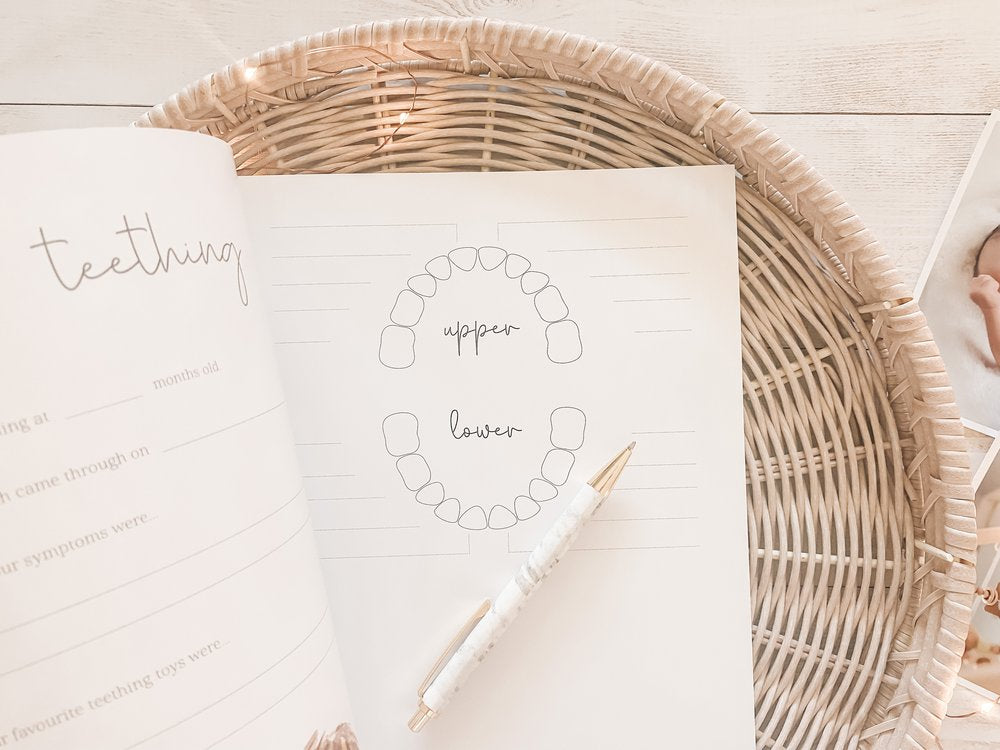 teething
months old
at
came through on
symptoms were...
favourite teething toys were...
upper
lower